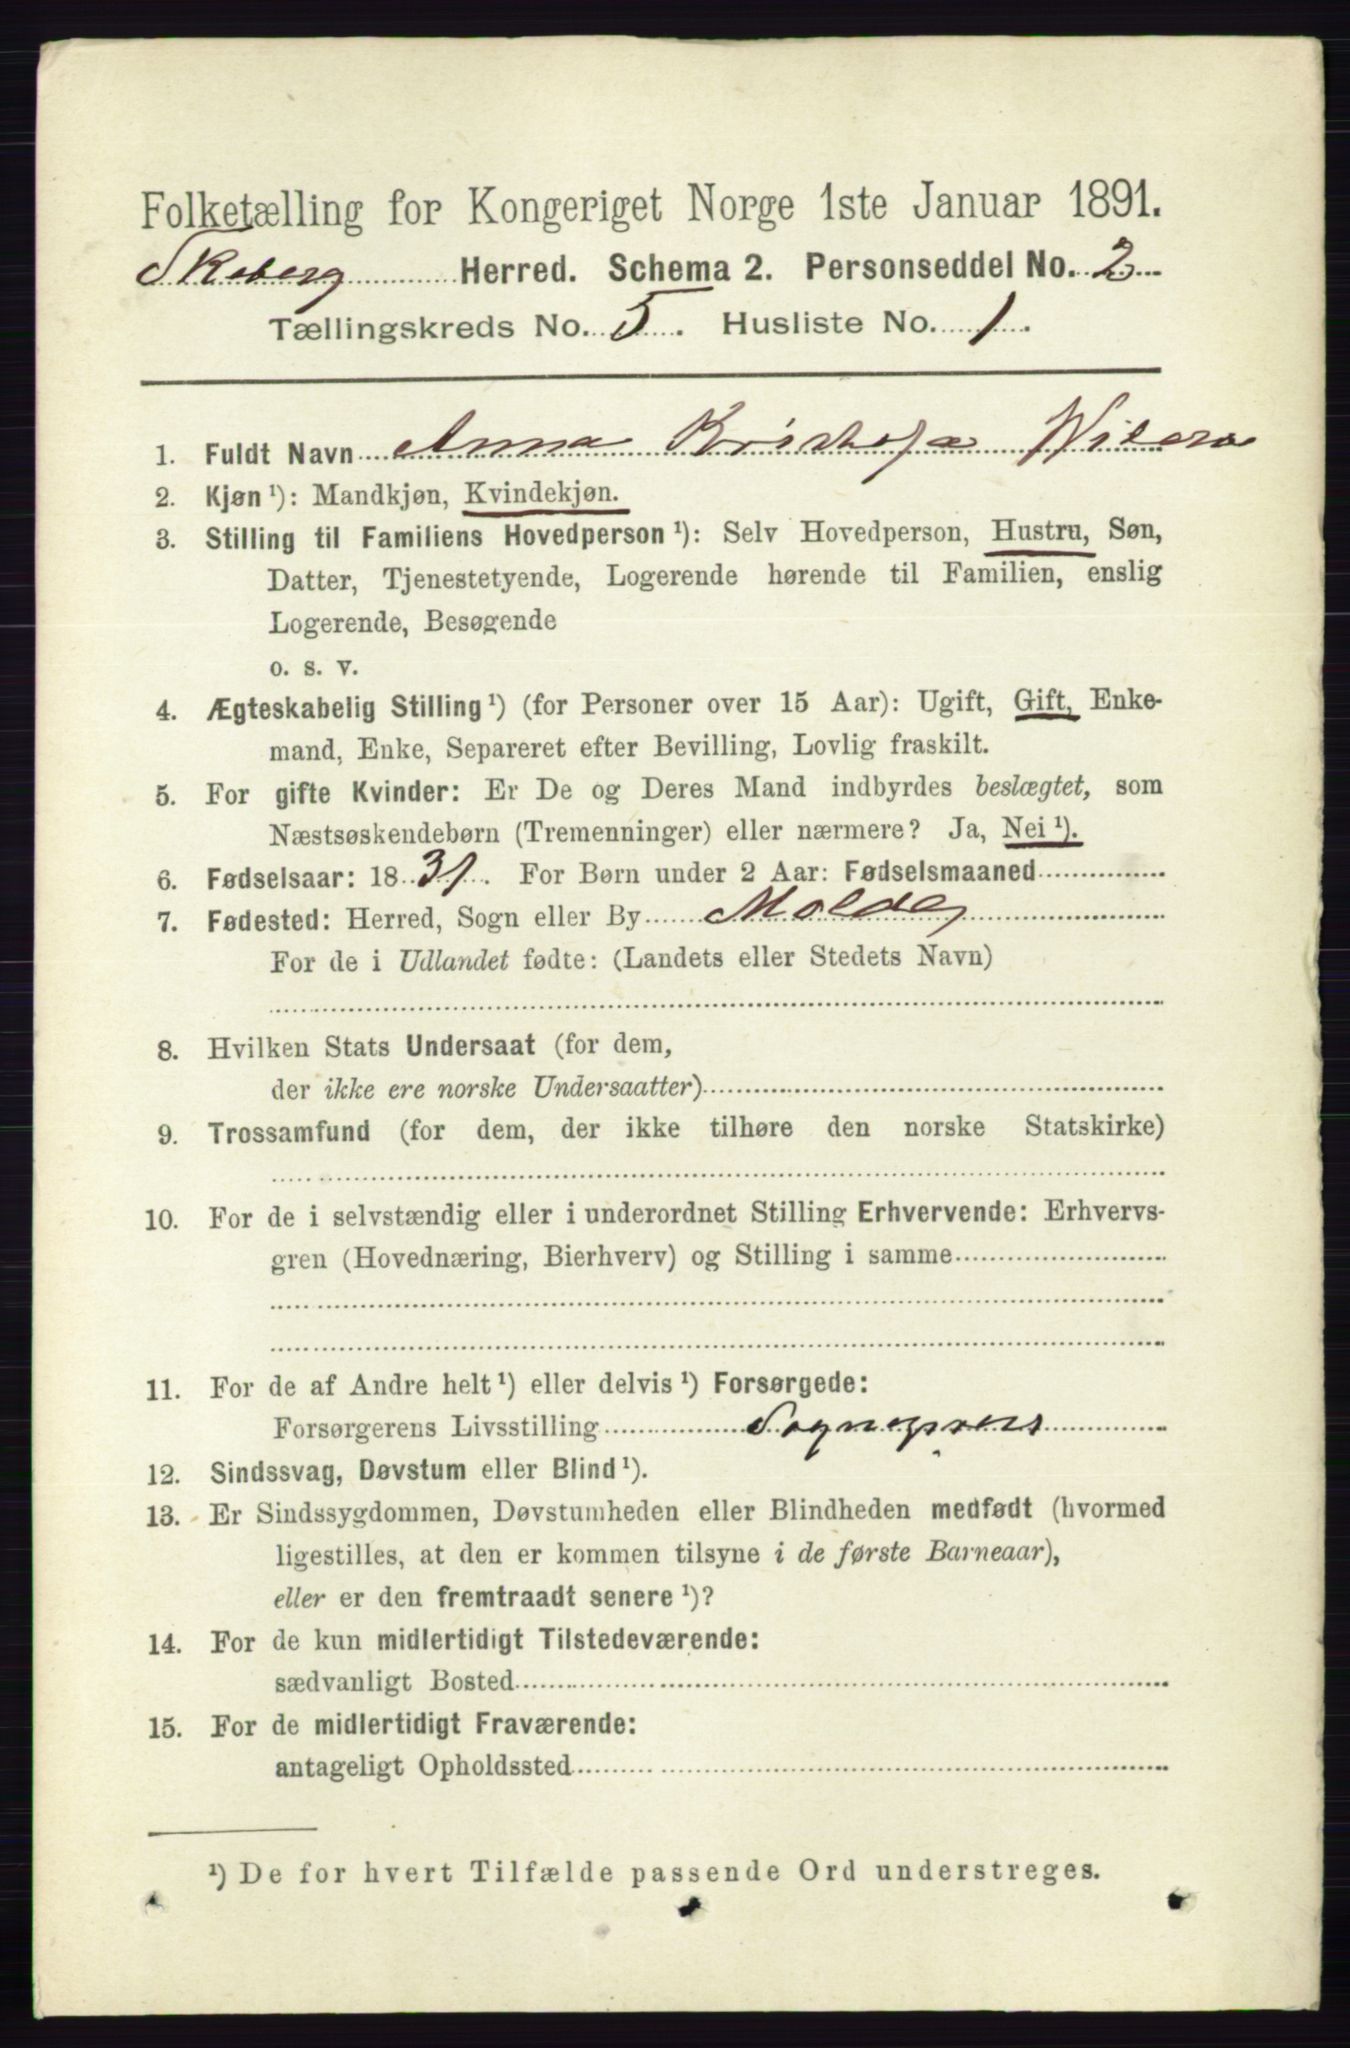 Folketælling for Kongeriget Norge 1ste Januar 1891.
Skeberg Herred. Schema 2. Personseddel No. 2
Tællingskreds No. 5. Husliste No. 1.
1. Fuldt Navn Anna
2. Kjøn ¹): Mandkjøn, Kvindekjøn.
3. Stilling til Familiens Hovedperson ¹): Selv Hovedperson, Hustru, Søn,
Datter, Tjenestetyende, Logerende hørende til Familien, enslig
Logerende, Besøgende
o. s. v.
4. Ægteskabelig Stilling ¹) (for Personer over 15 Aar): Ugift, Gift, Enke-
mand, Enke, Separeret efter Bevilling, Lovlig fraskilt.
5. For gifte Kvinder: Er De og Deres Mand indbyrdes beslægtet, som
Næstsøskendebørn (Tremenninger) eller nærmere? Ja, Nei ¹).
6. Fødselsaar: 1831. For Børn under 2 Aar: Fødselsmaaned
7. Fødested: Herred, Sogn eller By Molde
For de i Udlandet fødte: (Landets eller Stedets Navn)
8. Hvilken Stats Undersaat (for dem,
der ikke ere norske Undersaatter)
9. Trossamfund (for dem, der ikke tilhøre den norske Statskirke)
10. For de i selvstændig eller i underordnet Stilling Erhvervende: Erhvervs-
gren (Hovednæring, Bierhverv) og Stilling i samme
11. For de af Andre helt ¹) eller delvis ¹) Forsørgede:
Forsørgerens Livsstilling Sognepræst
12. Sindssvag, Døvstum eller Blind ¹).
13. Er Sindssygdommen, Døvstumheden eller Blindheden medfødt (hvormed
ligestilles, at den er kommen tilsyne i de første Barneaar),
eller er den fremtraadt senere ¹)?
14. For de kun midlertidigt Tilstedeværende:
sædvanligt Bosted
15. For de midlertidigt Fraværende:
antageligt Opholdssted
¹) De for hvert Tilfælde passende Ord understreges.